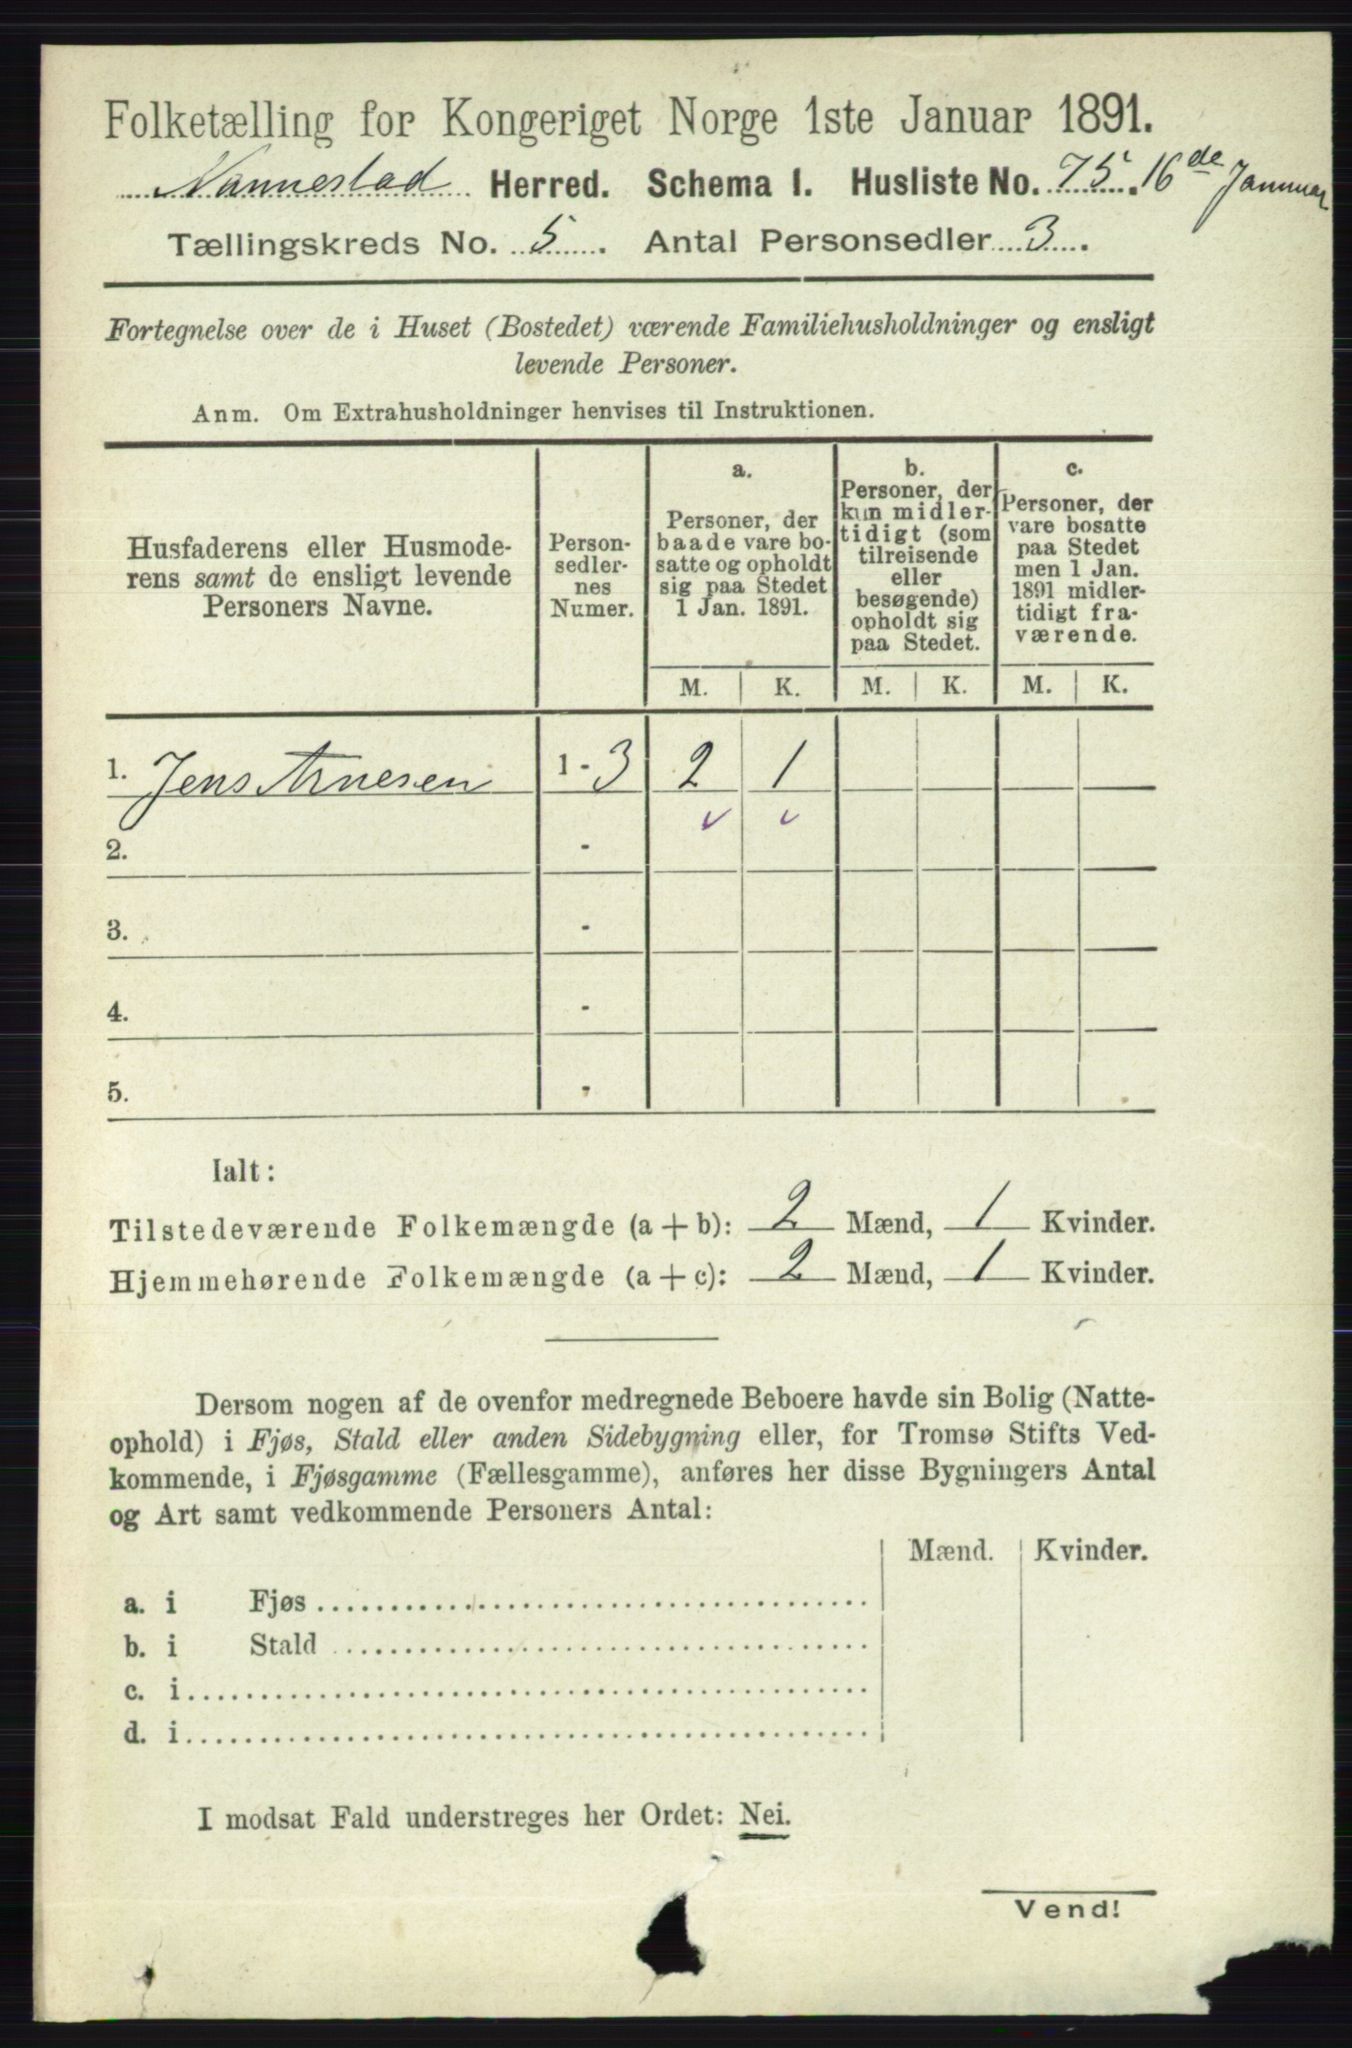 Folketælling for Kongeriget Norge 1ste Januar 1891.
Nannestad Herred. Schema 1. Husliste No. 75. 16de Januar
Tællingskreds No. 5. Antal Personsedler 3.
Fortegnelse over de i Huset (Bostedet) værende Familiehusholdninger og ensligt
levende Personer.
Anm. Om Extrahusholdninger henvises til Instruktionen.
Husfaderens eller Husmode-
rens samt de ensligt levende
Personers Navne.
Person-
sedler-
nes
Numer.
a.
Personer, der
baade vare bo-
satte og opholdt
sig paa Stedet
1 Jan. 1891.
b.
Personer, der
kun midler-
tidigt (som
tilreisende
eller
besøgende)
opholdt sig
paa Stedet.
c.
Personer, der
vare bosatte
paa Stedet
men 1 Jan.
1891 midler-
tidigt fra-
værende.
M. K. M. K. M. K.
1. Jens Arnesen 1 - 3 2 1
2. -
3. -
4. -
5. -
Ialt:
Tilstedeværende Folkemængde (a + b): 2 Mænd, 1 Kvinder.
Hjemmehørende Folkemængde (a + c): 2 Mænd, 1 Kvinder.
Dersom nogen af de ovenfor medregnede Beboere havde sin Bolig (Natte-
ophold) i Fjøs, Stald eller anden Sidebygning eller, for Tromsø Stifts Ved-
kommende, i Fjøsgamme (Fællesgamme), anføres her disse Bygningers Antal
og Art samt vedkommende Personers Antal:
Mænd. Kvinder.
a. i Fjøs
b. i Stald
c. i
d. i
I modsat Fald understreges her Ordet: Nei.
Vend!